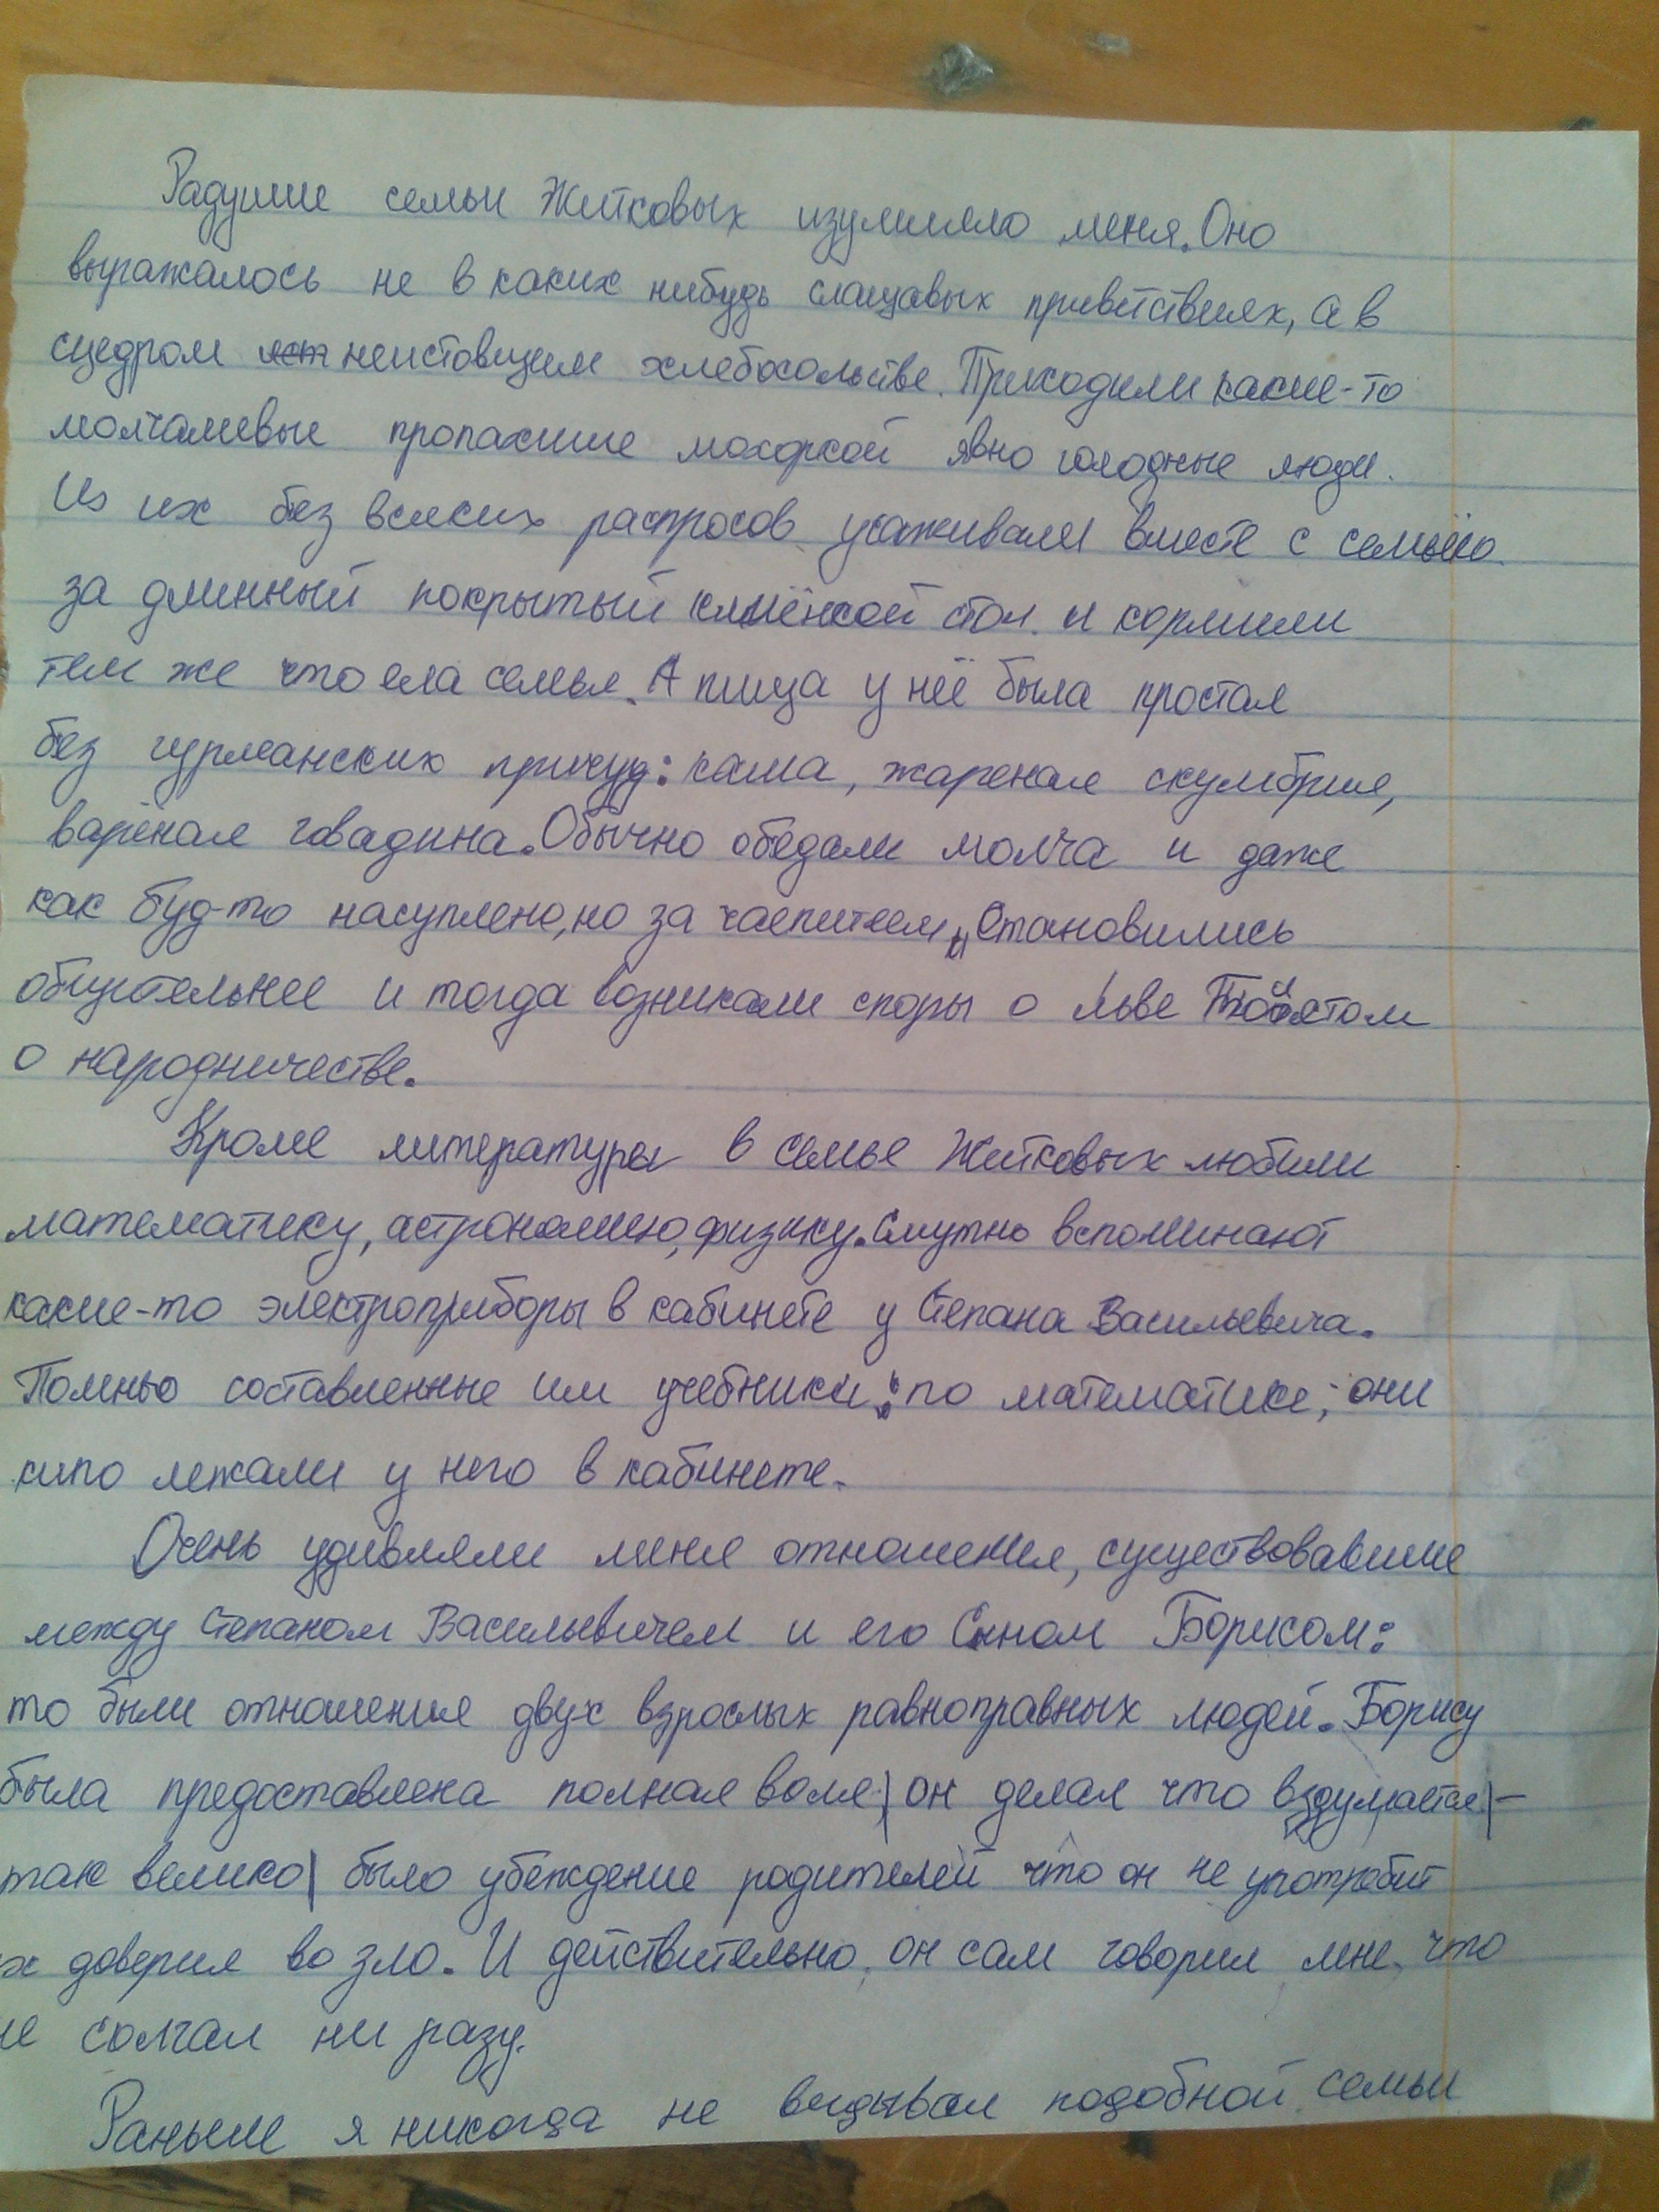 Радушие семьи Житковых изумляло меня. Оно
выражалось не в каких нибудь слащавых приветствиях, а в
сщедром неистовщем хлебосольстве. Приходили какие-то
молчаливые пропахшие махоркой явно голодные люди.
Из их без всяких распросов усаживали вместе с семьёю
за длинный покрытый клиёнкой стол и кормили
тем же что ела семья. А пища у неё была простая
без гурманских причуд: каша, жареная скумбрия,
варёная говадина. Обычно обедали молча и даже
как буд-то насуплено, но за чаепитеем, становились
общительнее и тогда возникали споры о Льве
о народничестве.
Кроме литературы в семье Житковых любили
математику, астрономию, физику. Смутно вспоминают
какие-то электроприборы в кабинете у Степана Васильевича.
Помнью составленные им учебники: по математике; они
кипо лежали у него в кабинете.
Очень удивляли меня отношения, существовавшие
между Степаном Васильевичем и его Сыном Борисом:
то были отношения двух взрослых равноправных людей. Борису
была предоставлена полная воля | он делал что вздумается | -
так велико | было убеждение родителей что он не употребит
их доверия во зло. И действительно он сам говорил мне, что
не солгал ни разу.
Раньше я никогда не видывал подобной семьи